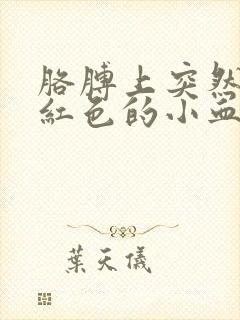 胳膊上突然
紅色的小血
葉天儀